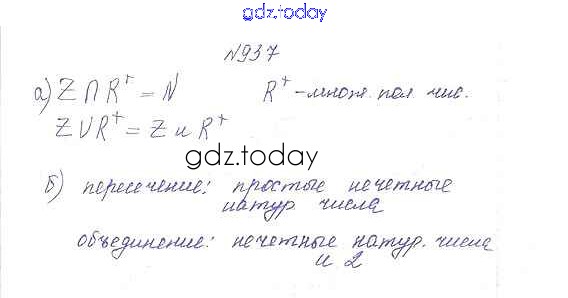 gdz.today
№937
а) Z∩R⁺ = N R⁺ - множ. пол. чис.
Z∪R⁺ = Z и R⁺
gdz.today
б) пересечение: простые нечетные
натур. числа
объединение: нечетные натур. числа
и 2